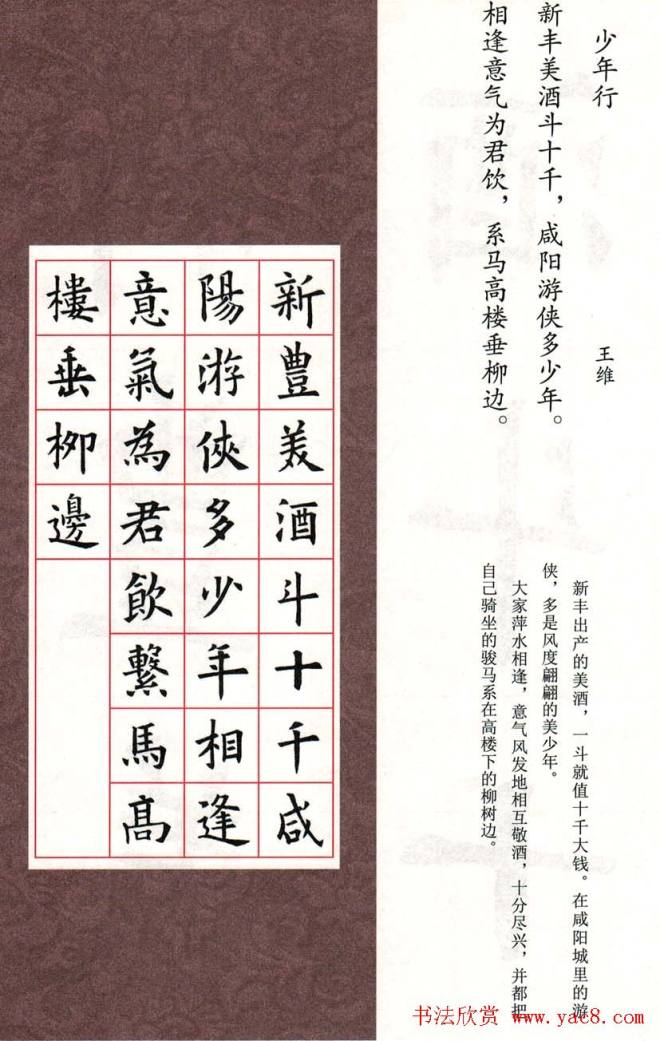 少年行
王维
新丰美酒斗十千，咸阳游侠多少年。
相逢意气为君饮，系马高楼垂柳边。
新丰出产的美酒，一斗就值十千大钱。在咸阳城里的游
侠，多是风度翩翩的美少年。
大家萍水相逢，意气风发地相互敬酒，十分尽兴，并都把
自己骑坐的骏马系在高楼下的柳树边。
新豐美酒斗十千咸
陽游俠多少年相逢
意氣為君飲繫馬高
樓垂柳邊
书法欣赏 www.yac8.com